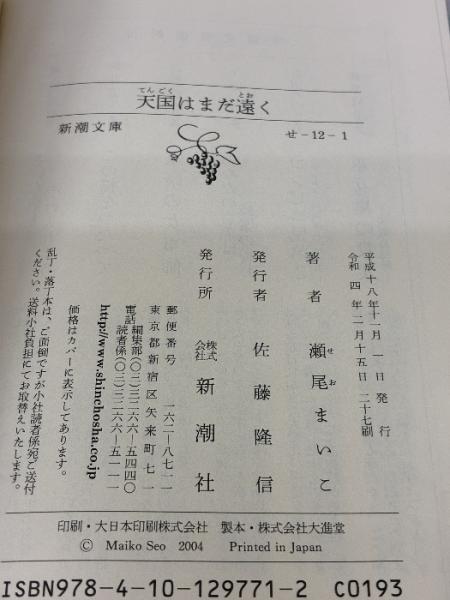 てんごく とお
天国はまだ遠く
新潮文庫 せ-12-1
平成十八年十一月 一 日 発 行
令和 四 年 二 月 十 五 日 二十七刷
著者 瀬尾まいこ
せお
発行者 佐藤隆信
発行所 株式会社 新潮社
郵便番号 一六二-八七一一
東京都新宿区矢来町七一
電話 編集部(〇三)三二六六-五四四〇
読者係(〇三)三二六六-五一一一
http://www.shinchosha.co.jp
価格はカバーに表示してあります。
乱丁・落丁本は、ご面倒ですが小社読者係宛ご送付
ください。送料小社負担にてお取替えいたします。
印刷・大日本印刷株式会社 製本・株式会社大進堂
© Maiko Seo 2004 Printed in Japan
ISBN978-4-10-129771-2 C0193